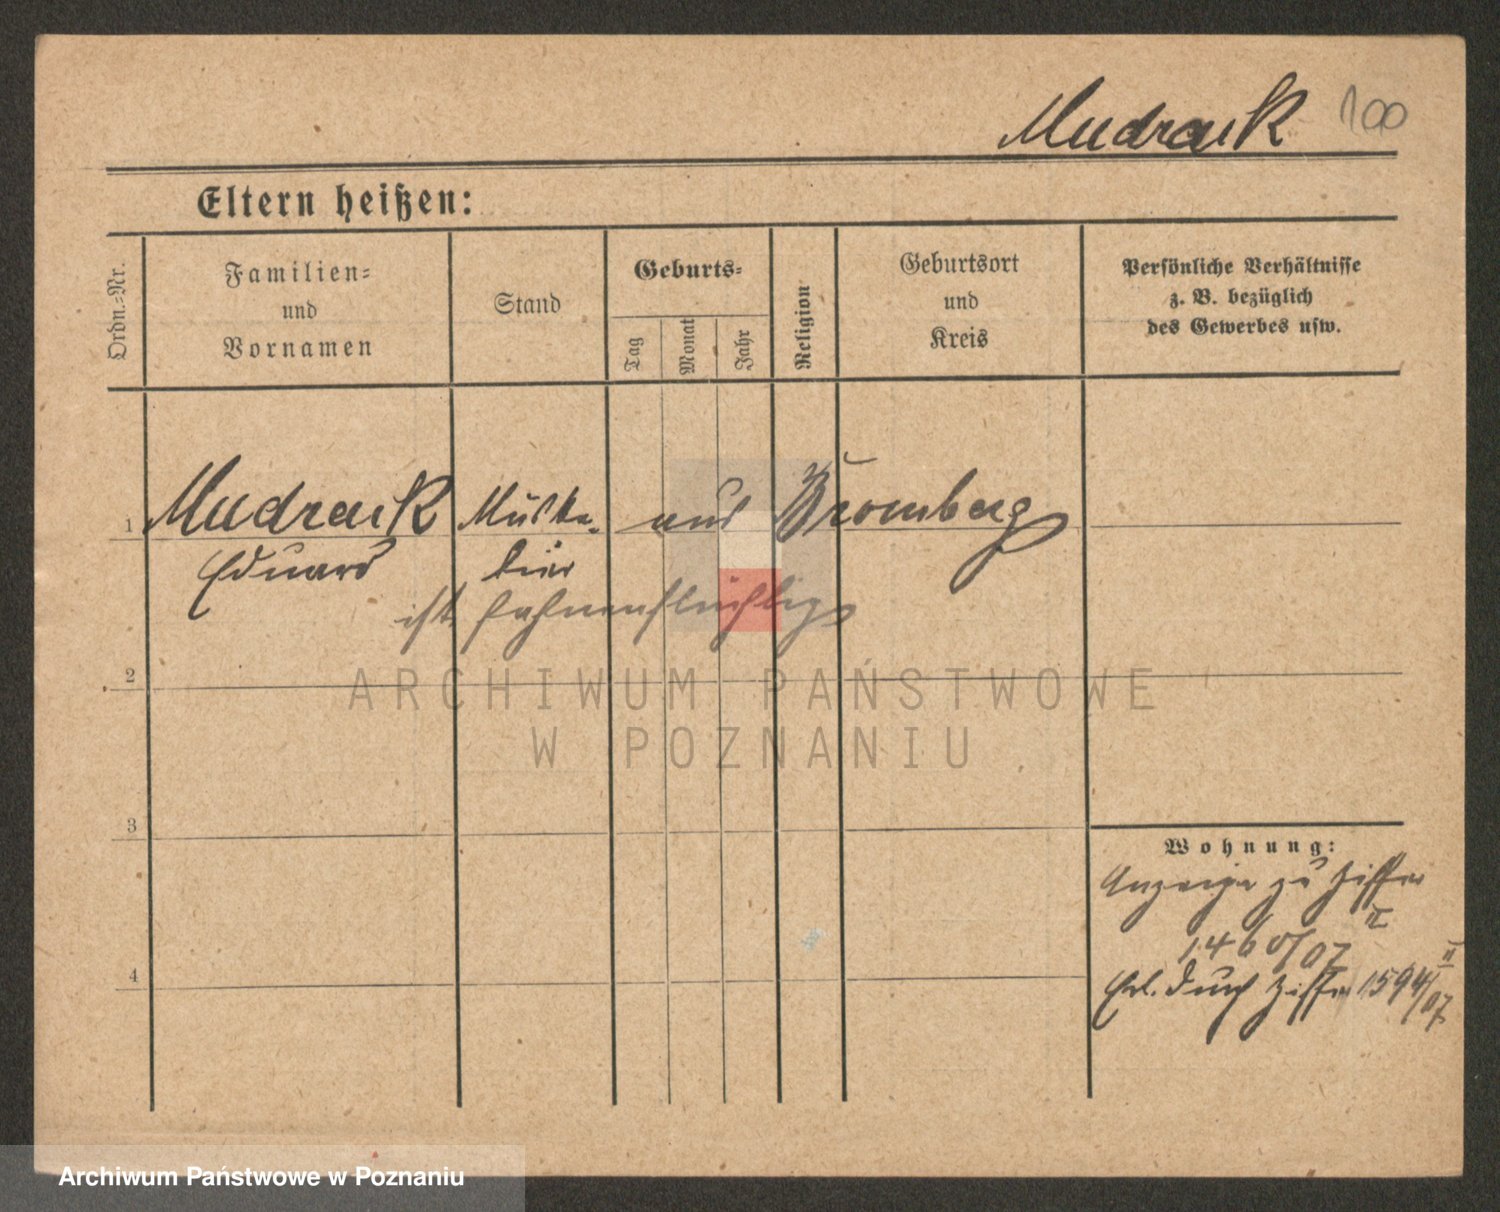 Mudrack 100
Eltern heißen:
Ordn.-Nr.
Familien-
und
Vornamen
Stand
Geburts-
Tag
Monat
Jahr
Religion
Geburtsort
und
Kreis
Persönliche Verhältnisse
z. B. bezüglich
des Gewerbes usw.
1 Mudrack Muske- aus Bromberg
Eduard tier
ist fahnenflüchtig
2
ARCHIWUM PAŃSTWOWE
W POZNANIU
3
Wohnung:
Anzeige zu Ziffer
1460/07 II
4
Erl. durch Ziffer 1594/07 II
Archiwum Państwowe w Poznaniu